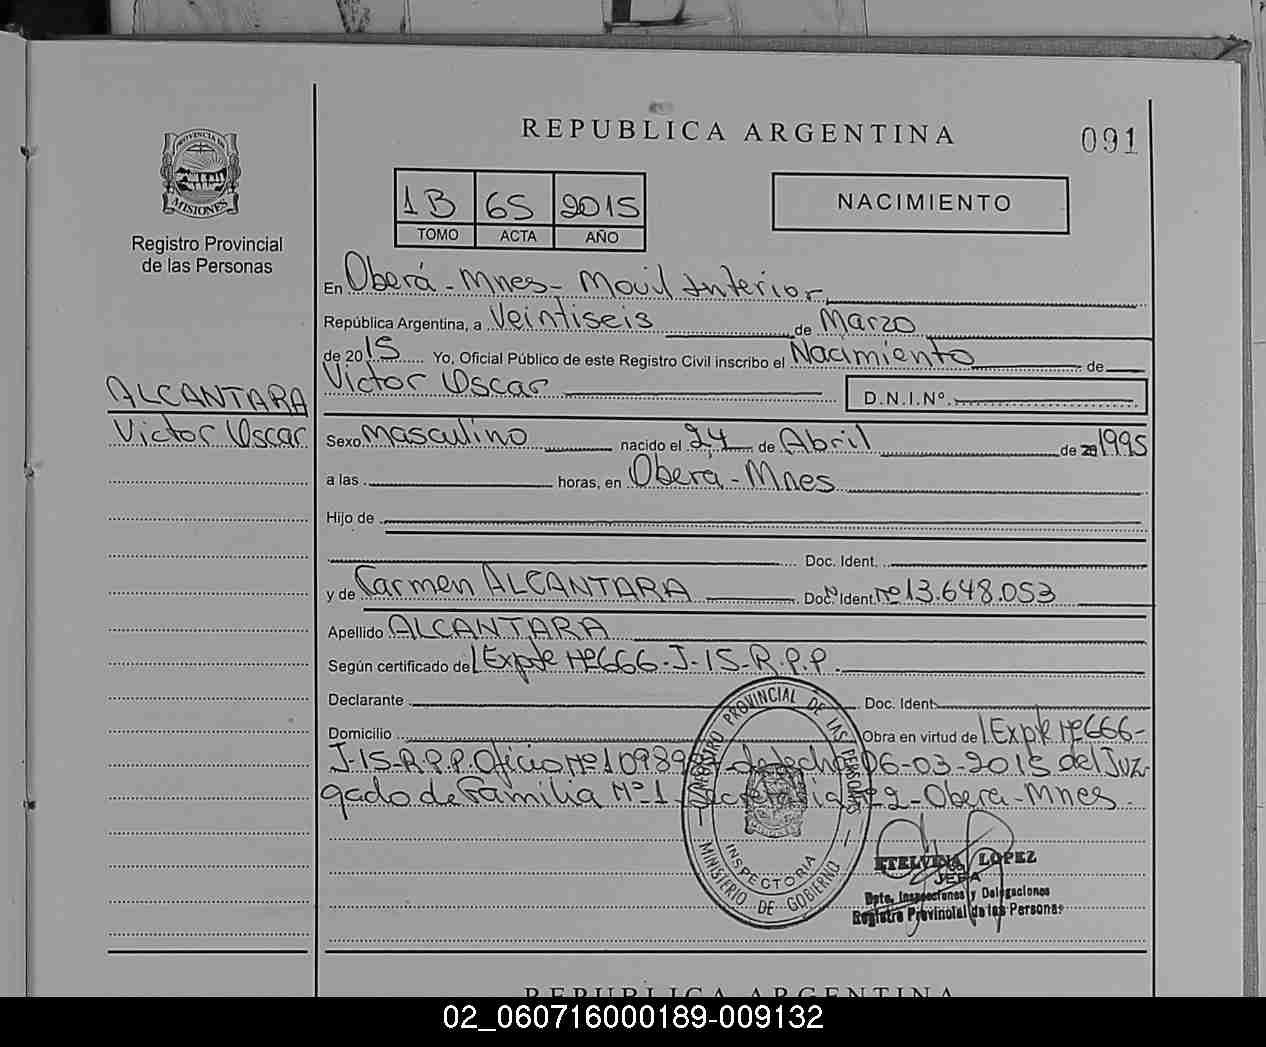 REPUBLICA ARGENTINA
091
PROVINCIA DE
MISIONES
Registro Provincial
de las Personas
1B 65 2015
TOMO ACTA AÑO
NACIMIENTO
En Oberá - Mnes - Movil Interior
República Argentina, a Veintiseis de Marzo
de 2015 Yo, Oficial Público de este Registro Civil inscribo el Nacimiento de
Victor Oscar
D.N.I.Nº.
ALCANTARA
Victor Oscar
Sexo Masculino nacido el 24 de Abril de 20 1995
a las horas, en Oberá - Mnes
Hijo de
Doc. Ident.
y de Carmen ALCANTARA Doc. Ident. Nº 13.648.053
Apellido ALCANTARA
Según certificado de Expte Nº 666-J-15-R.P.P.
Declarante Doc. Ident.
Domicilio Obra en virtud de Expte Nº 666-
J-15-R.P.P. Oficio Nº 10989 de fecha 06-03-2015 del Juz-
gado de Familia Nº 1 - Secretaria Nº 2 - Obera - Mnes.
REGISTRO PROVINCIAL DE LAS PERSONAS
INSPECTORIA
MINISTERIO DE GOBIERNO
ETELVINA LOPEZ
JEFA
Dpto. Inspecciones y Delegaciones
Registro Provincial de las Personas
REPUBLICA ARGENTINA
02_060716000189-009132